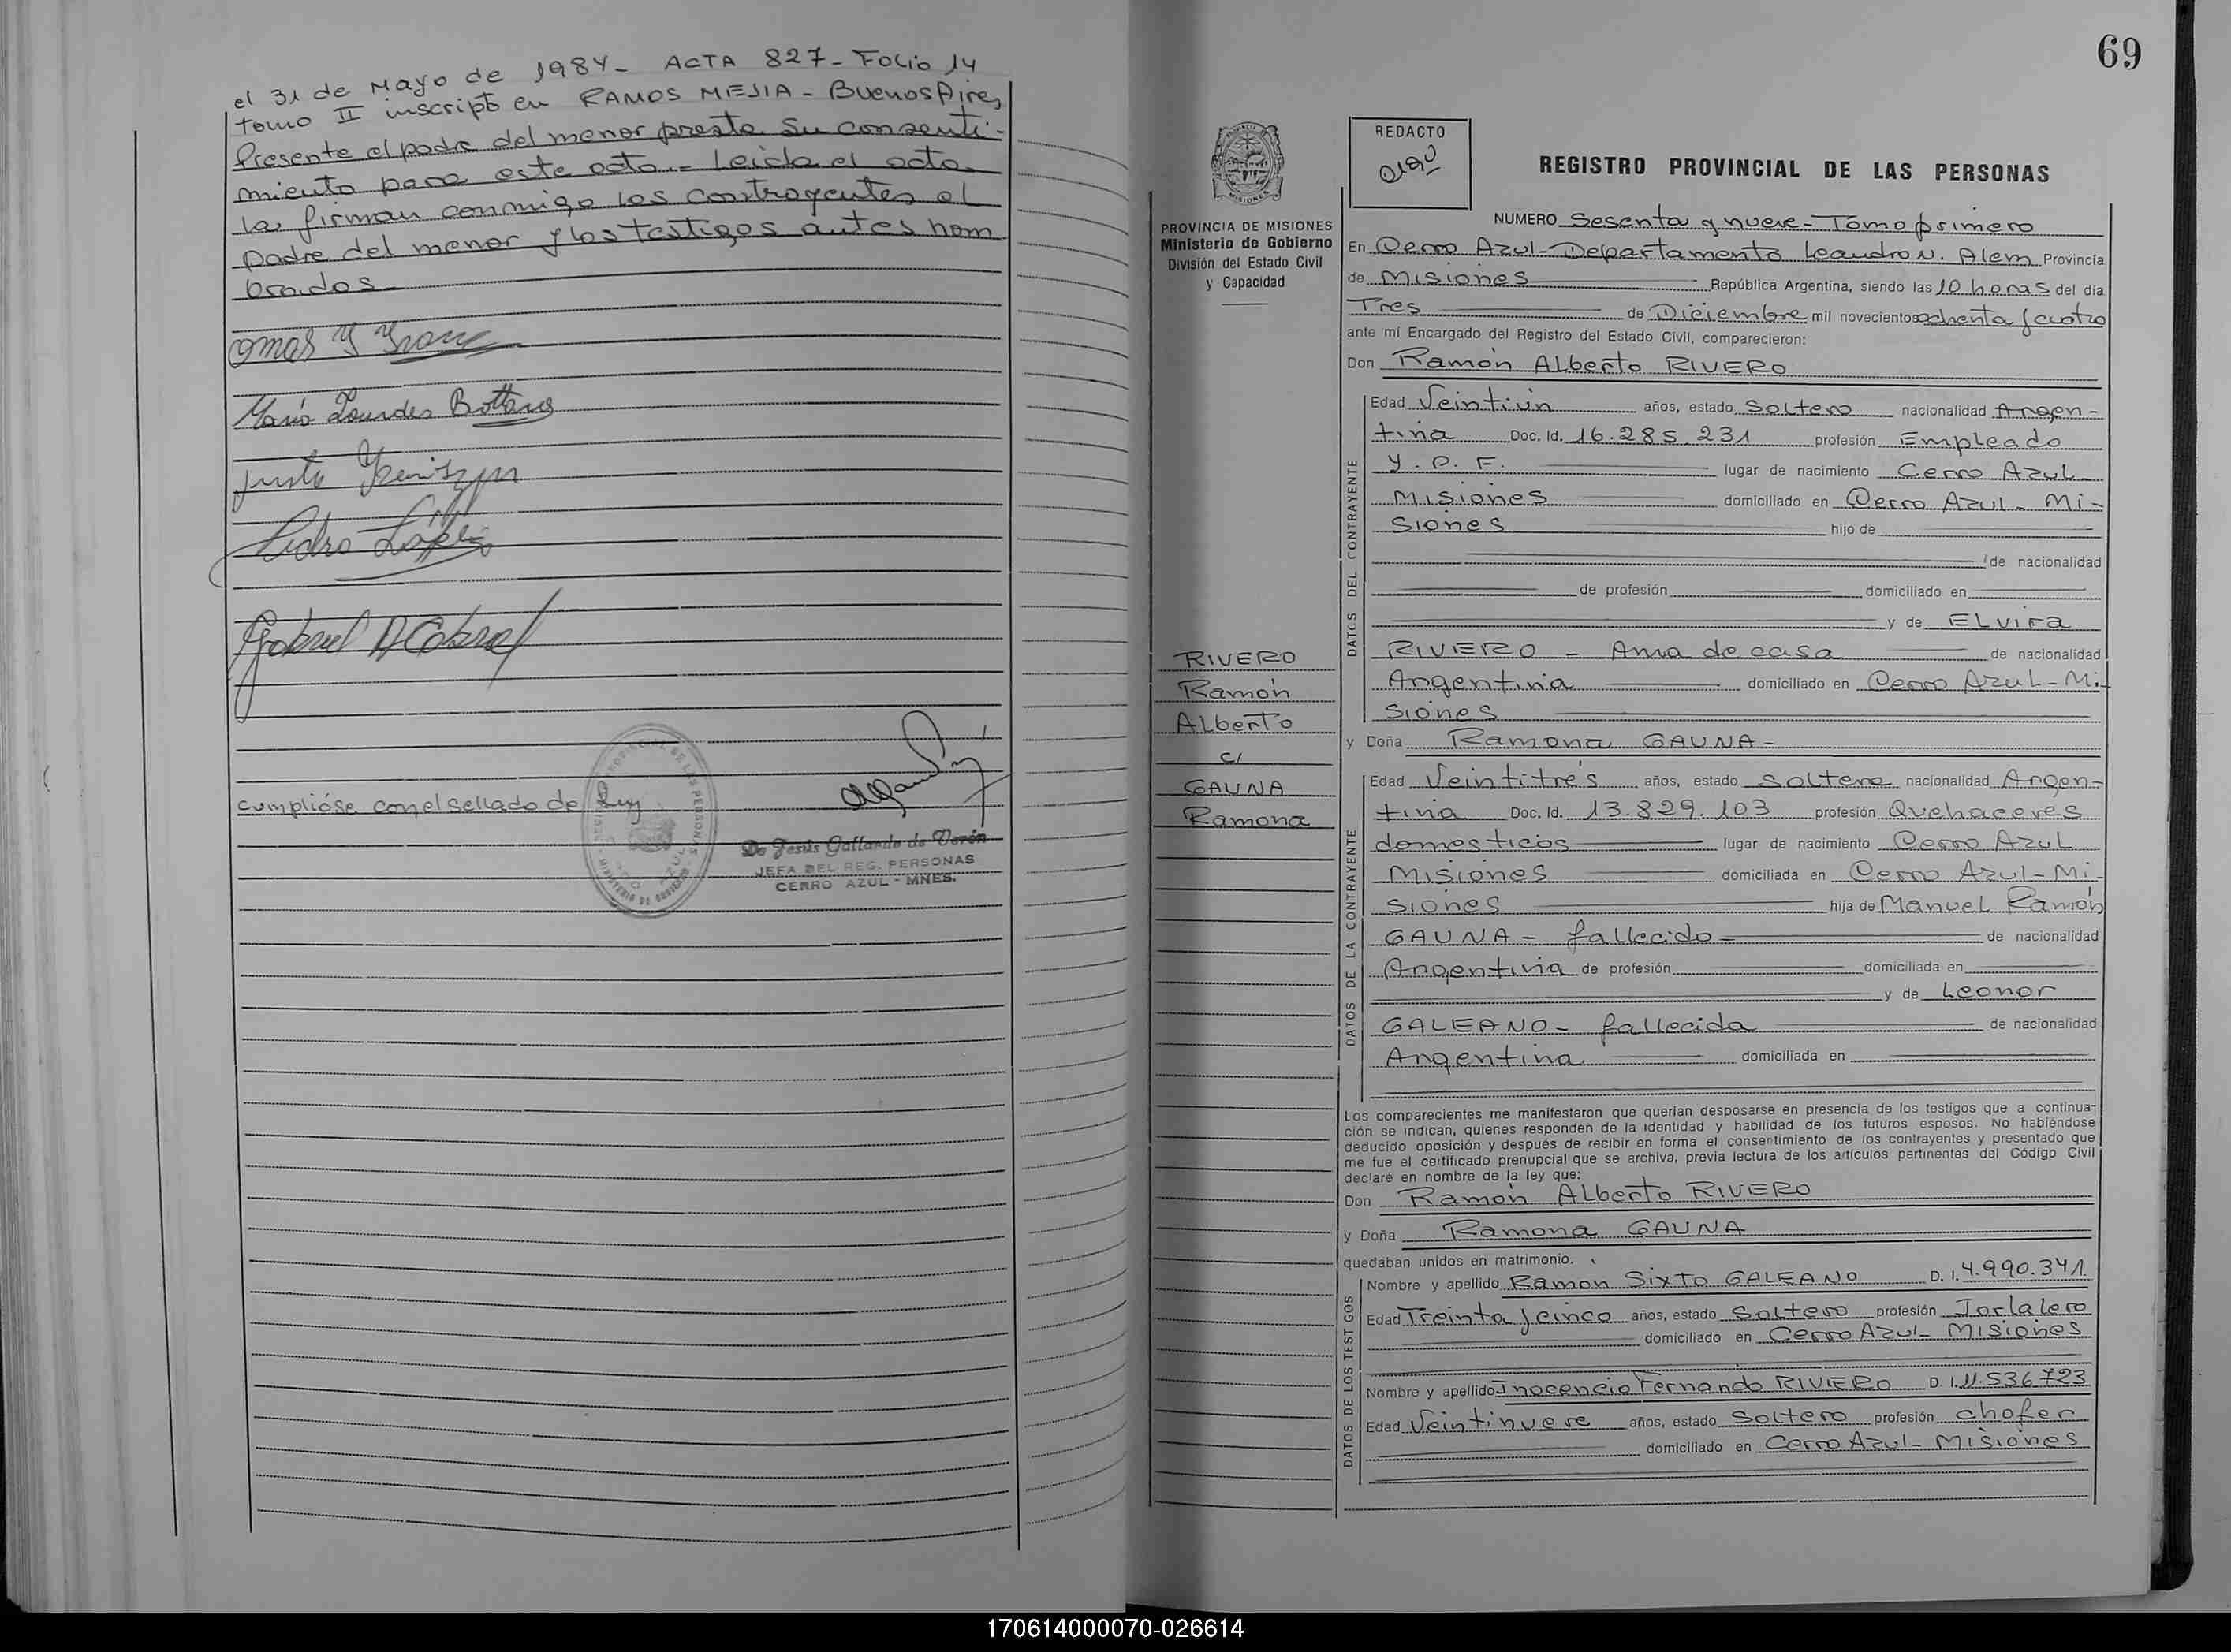 el 31 de Mayo de 1984 - ACTA 827 - Folio 14
tomo II inscripto en RAMOS MEJIA - Buenos Aires
Presente el padre del menor presta su consenti-
miento para este acto.- Leida el acta
la firman conmigo los contrayentes el
padre del menor y los testigos antes nom
brados -
Omar Y
Maria Lourdes
Justo
Pidro López
Gabriel D Cabral
cumplióse con el sellado de Ley
De Jesús Gallardo de Verón
JEFA DEL REG. PERSONAS
CERRO AZUL - MNES.
69
REDACTO
REGISTRO PROVINCIAL DE LAS PERSONAS
MISIONES
PROVINCIA DE MISIONES
Ministerio de Gobierno
División del Estado Civil
y Capacidad
RIVERO
Ramón
Alberto
c/
GAUNA
Ramona
NUMERO Sesenta y nueve - Tomo primero
En Cerro Azul - Departamento Leandro N. Alem Provincia
de Misiones República Argentina, siendo las 10 horas del día
Tres de Diciembre mil novecientos ochenta y cuatro
ante mí Encargado del Registro del Estado Civil, comparecieron:
Don Ramón Alberto RIVERO
DATOS DEL CONTRAYENTE
Edad Veintiún años, estado Soltero nacionalidad Argen-
tina Doc. Id. 16.285.231 profesión Empleado
Y.P.F. lugar de nacimiento Cerro Azul -
Misiones domiciliado en Cerro Azul - Mi-
siones hijo de
de nacionalidad
de profesión domiciliado en
y de Elvira
RIVERO - Ama de casa de nacionalidad
Argentina domiciliado en Cerro Azul - Mi-
siones
y Doña Ramona GAUNA -
DATOS DE LA CONTRAYENTE
Edad Veintitrés años, estado Soltera nacionalidad Argen-
tina Doc. Id. 13.829.103 profesión Quehaceres
domesticos lugar de nacimiento Cerro Azul
Misiones domiciliada en Cerro Azul - Mi-
siones hija de Manuel Ramón
GAUNA - fallecido - de nacionalidad
Argentina de profesión domiciliada en
y de Leonor
GALEANO - fallecida de nacionalidad
Argentina domiciliada en
Los comparecientes me manifestaron que querían desposarse en presencia de los testigos que a continua-
ción se indican, quienes responden de la identidad y habilidad de los futuros esposos. No habiéndose
deducido oposición y después de recibir en forma el consentimiento de los contrayentes y presentado que
me fue el certificado prenupcial que se archiva, previa lectura de los artículos pertinentes del Código Civil
declaré en nombre de la ley que:
Don Ramón Alberto RIVERO
y Doña Ramona GAUNA
quedaban unidos en matrimonio.
DATOS DE LOS TESTIGOS
Nombre y apellido Ramon Sixto GALEANO D. I. 4.990.341
Edad Treinta y cinco años, estado Soltero profesión Jorlalero
domiciliado en Cerro Azul - Misiones
Nombre y apellido Inocencio Fernando RIVERO D. I. 11.536.723
Edad Veintinueve años, estado Soltero profesión chofer
domiciliado en Cerro Azul - Misiones
170614000070-026614